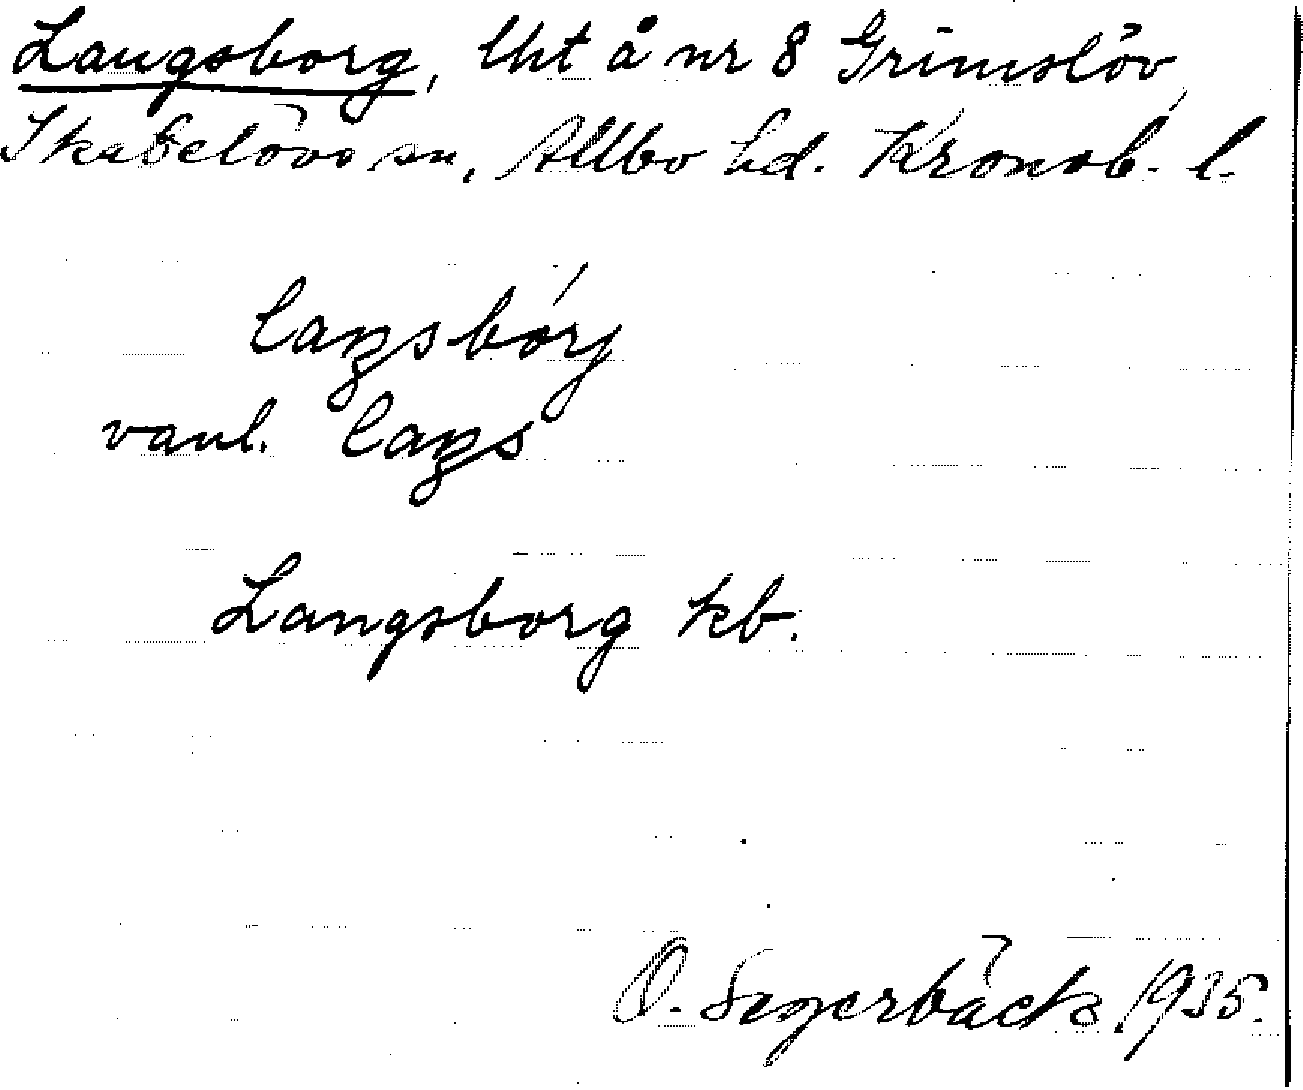 Langsborg, lht å nr 8 Grimslöv,
Skatelövs sn, Allbo hd. Kronob. l.
laŋsbórj
vanl. laŋs
Langsborg kb.
O. Segerbäck 1935.